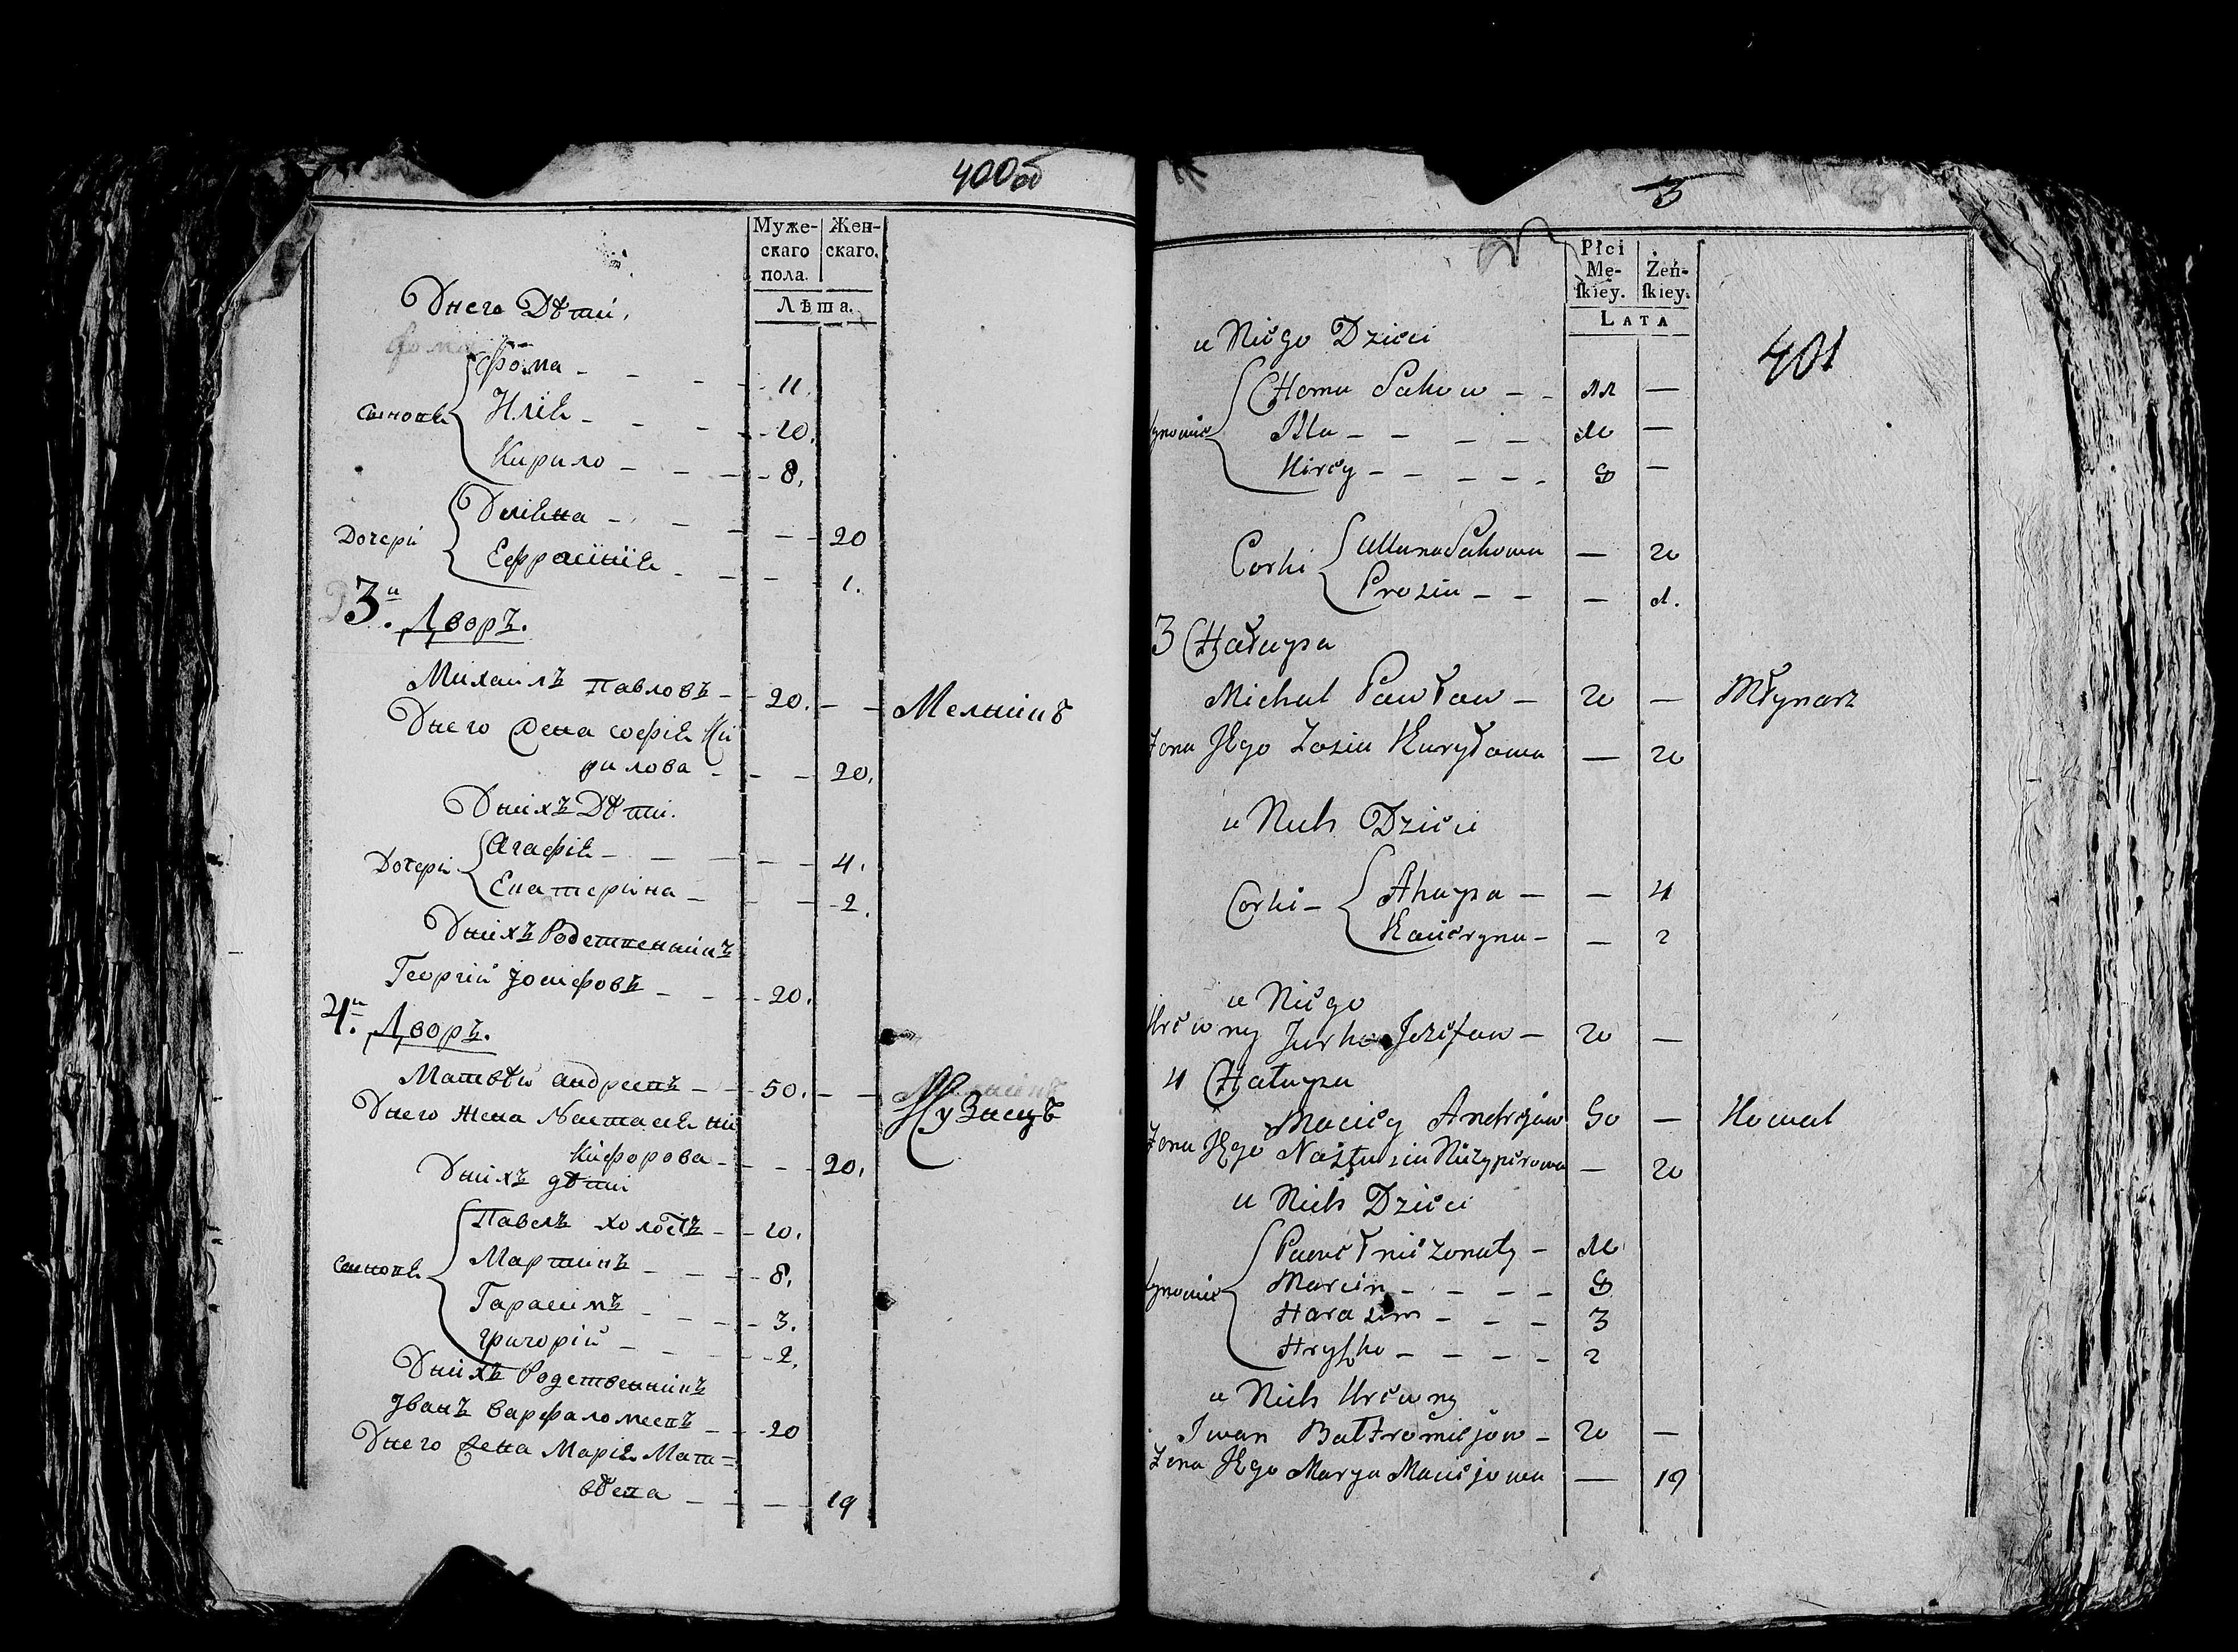 400об
Муже- Жен-
скаго скаго.
пола.
Лѣта.
Унего Дѣти,
Фома
Фома - - - - 11.
Сынове Илiя - - - - 10.
Кирило - - - - 8,
Дочери Улiяна - - - - - 20
Ефросинiя - - - 1.
3й. Дворъ.
Михаилъ Павловъ - - 20. - - Мелникъ
Унего Жена софiя Ки
рилова - - - 20,
Унихъ Дѣти.
Дочери Агафiя - - - - - 4.
Екатерина - - - 2.
Унихъ Родственникъ
Георгiй Iосифовъ - - - 20.
4й. Дворъ.
Матвѣй андреевъ - - 50. - -
Кузнецъ
Унего жена Настасiя ни
кифорова - - - 20,
Унихъ дѣти
Павелъ холостъ - - 10.
Сынове Мартинъ - - - - 8,
Гарасимъ - - - - 3.
григорiй - - - - 2.
Унихъ Родственникъ
Iванъ варфаломеевъ - - 20
Унего Жена Марiя Мат=
вѣева - - - 19
3
Płci
Mę- Żeń-
ſkiey. ſkiey.
LATA
401
u Niego Dzieci
Homa Sakow - - 11 —
Synowie Illa - - - - 10 —
Kirey - - - - - 8 —
Corki UllanaSakowa — 20
Prozia - - — 1.
3 Hałupa
Michał Pawłow - 20 — Młynarz
Zona Jego Zosia Kuryłowa — 20
u Nich Dzieci
Corki - Ahapa - — 4
Kateryna - — 2
u Niego
Krewny Jurko Jozefow - 20 —
4 Hałupa
Maciey Andrejow 50 — Kowal
Zona Jego Nastazia Niczyperowa — 20
u Nich Dzieci
Paweł nie zonaty - 10
Synowie Marcin - - - - 8
Harazim - - - 3
Hryſko - - - - 2
u Nich Krewny
Iwan Bałtromiejow - 20 —
Zona Jego Marya Maciejowa — 19